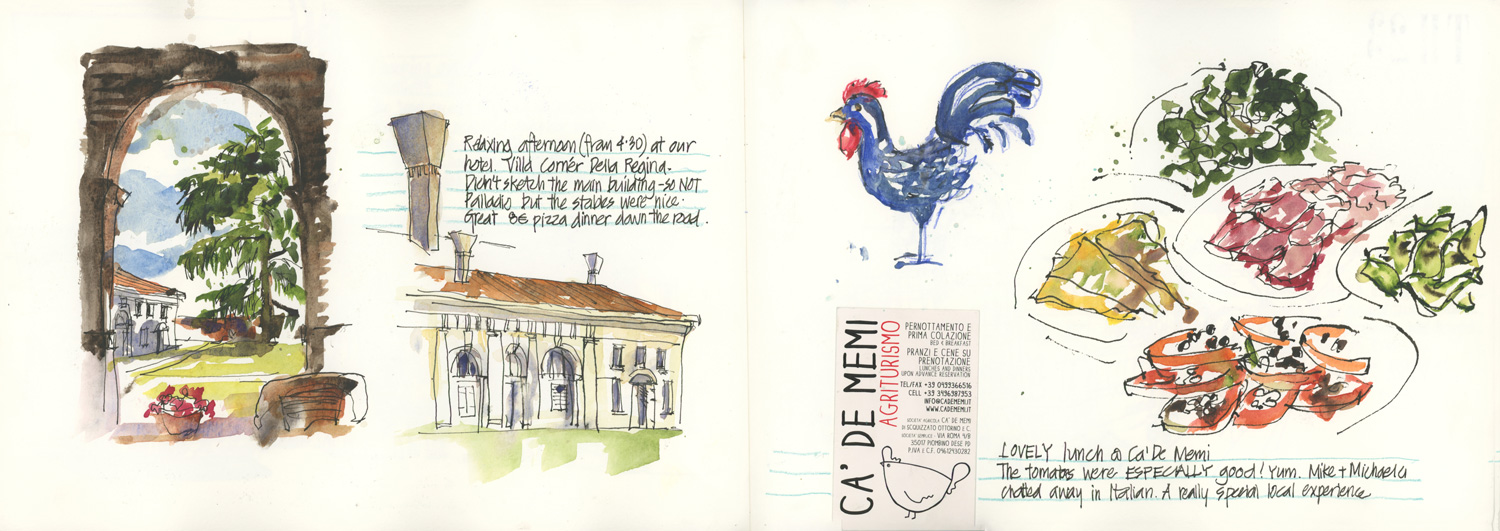 Relaxing afternoon (from 4.30) at our
hotel. Villa Cornér Della Regina.
Didn't sketch the main building - so NOT
Palladio but the stables were nice.
Great 8€ pizza dinner down the road.
CA' DE MEMI
AGRITURISMO
PERNOTTAMENTO E
PRIMA COLAZIONE
BED & BREAKFAST
PRANZI E CENE SU
PRENOTAZIONE
LUNCHES AND DINNERS
UPON ADVANCE RESERVATION
TEL/FAX +39 0499366516
CELL +39 3496987953
INFO@CADEMEMI.IT
WWW.CADEMEMI.IT
SOCIETA' AGRICOLA CA' DE MEMI
DI SCQUIZZATO OTTORINO E C.
SOCIETA' SEMPLICE - VIA ROMA 4/B
35017 PIOMBINO DESE PD
P.IVA E C.F. 04612930282
LOVELY lunch @ Ca' De Memi
The tomatos were ESPECIALLY good! Yum. Mike + Michaela
chatted away in Italian. A really special local experience